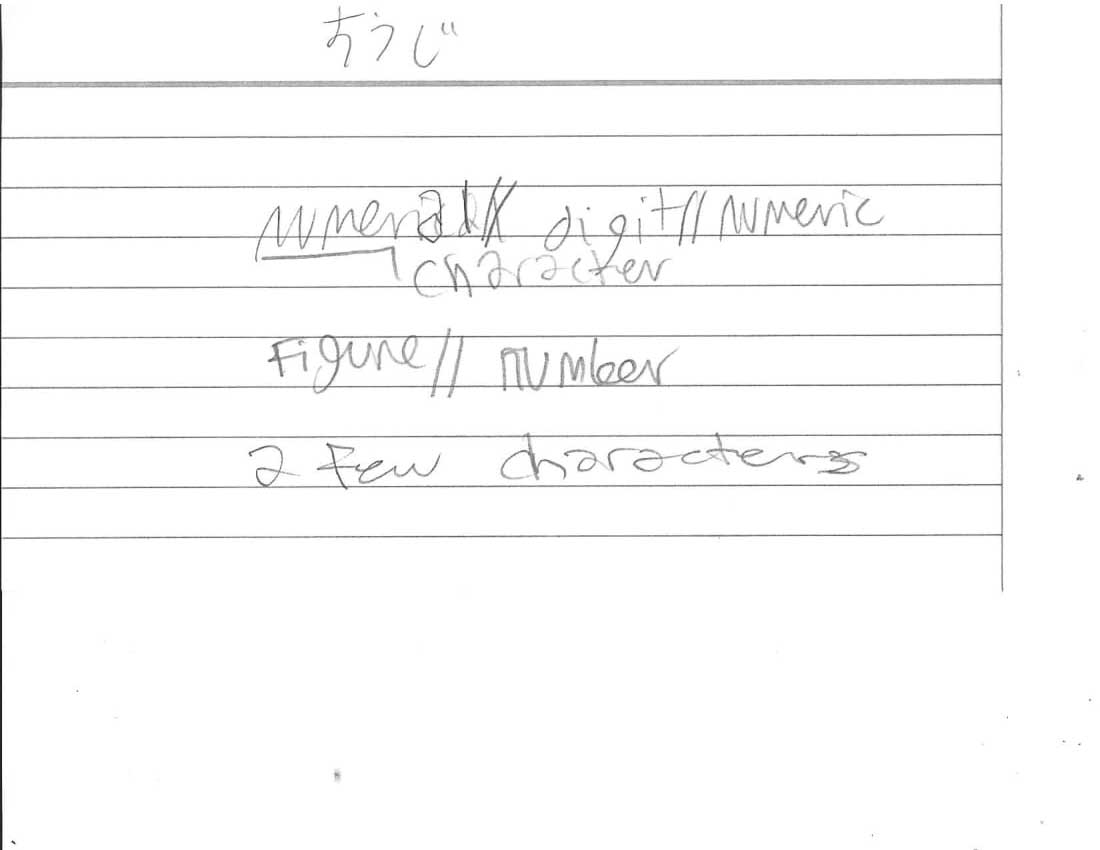 すうじ
numeral// digit// numeric
character
Figure// number
a few characters